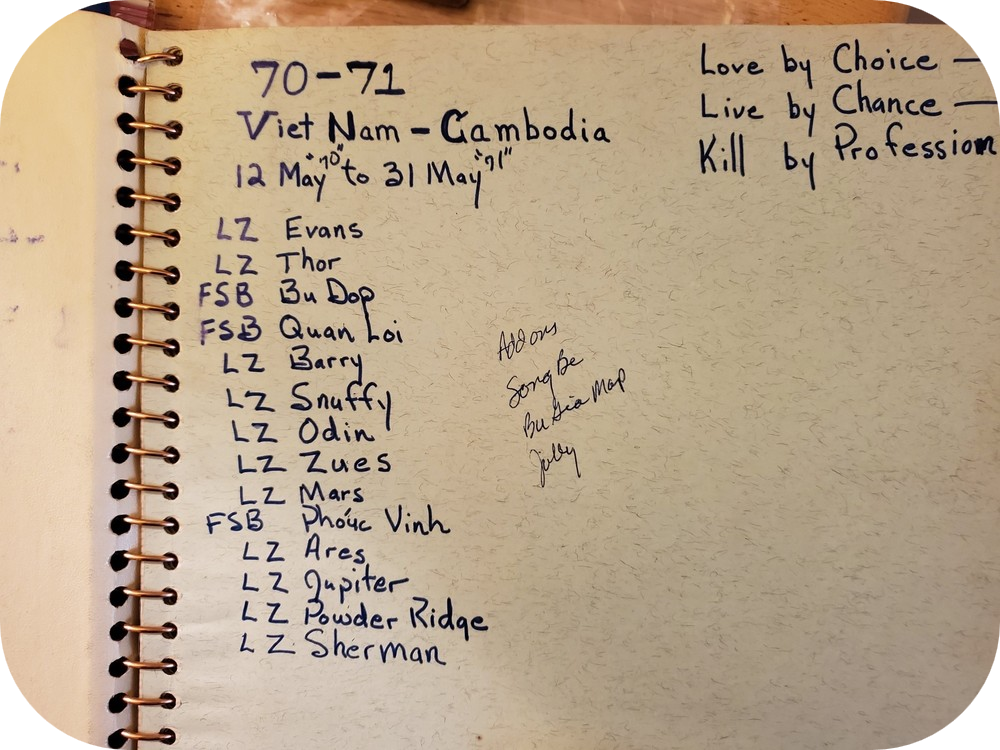 70-71
Viet Nam - Cambodia
12 May "70" to 31 May "71"
LZ Evans
LZ Thor
FSB Bu Dop
FSB Quan Loi
LZ Barry
LZ Snuffy
LZ Odin
LZ Zues
LZ Mars
FSB Phoúc Vinh
LZ Ares
LZ Jupiter
LZ Powder Ridge
LZ Sherman
Love by Choice —
Live by Chance —
Kill by Profession
Add ons
Song Be
Bu Gia Map